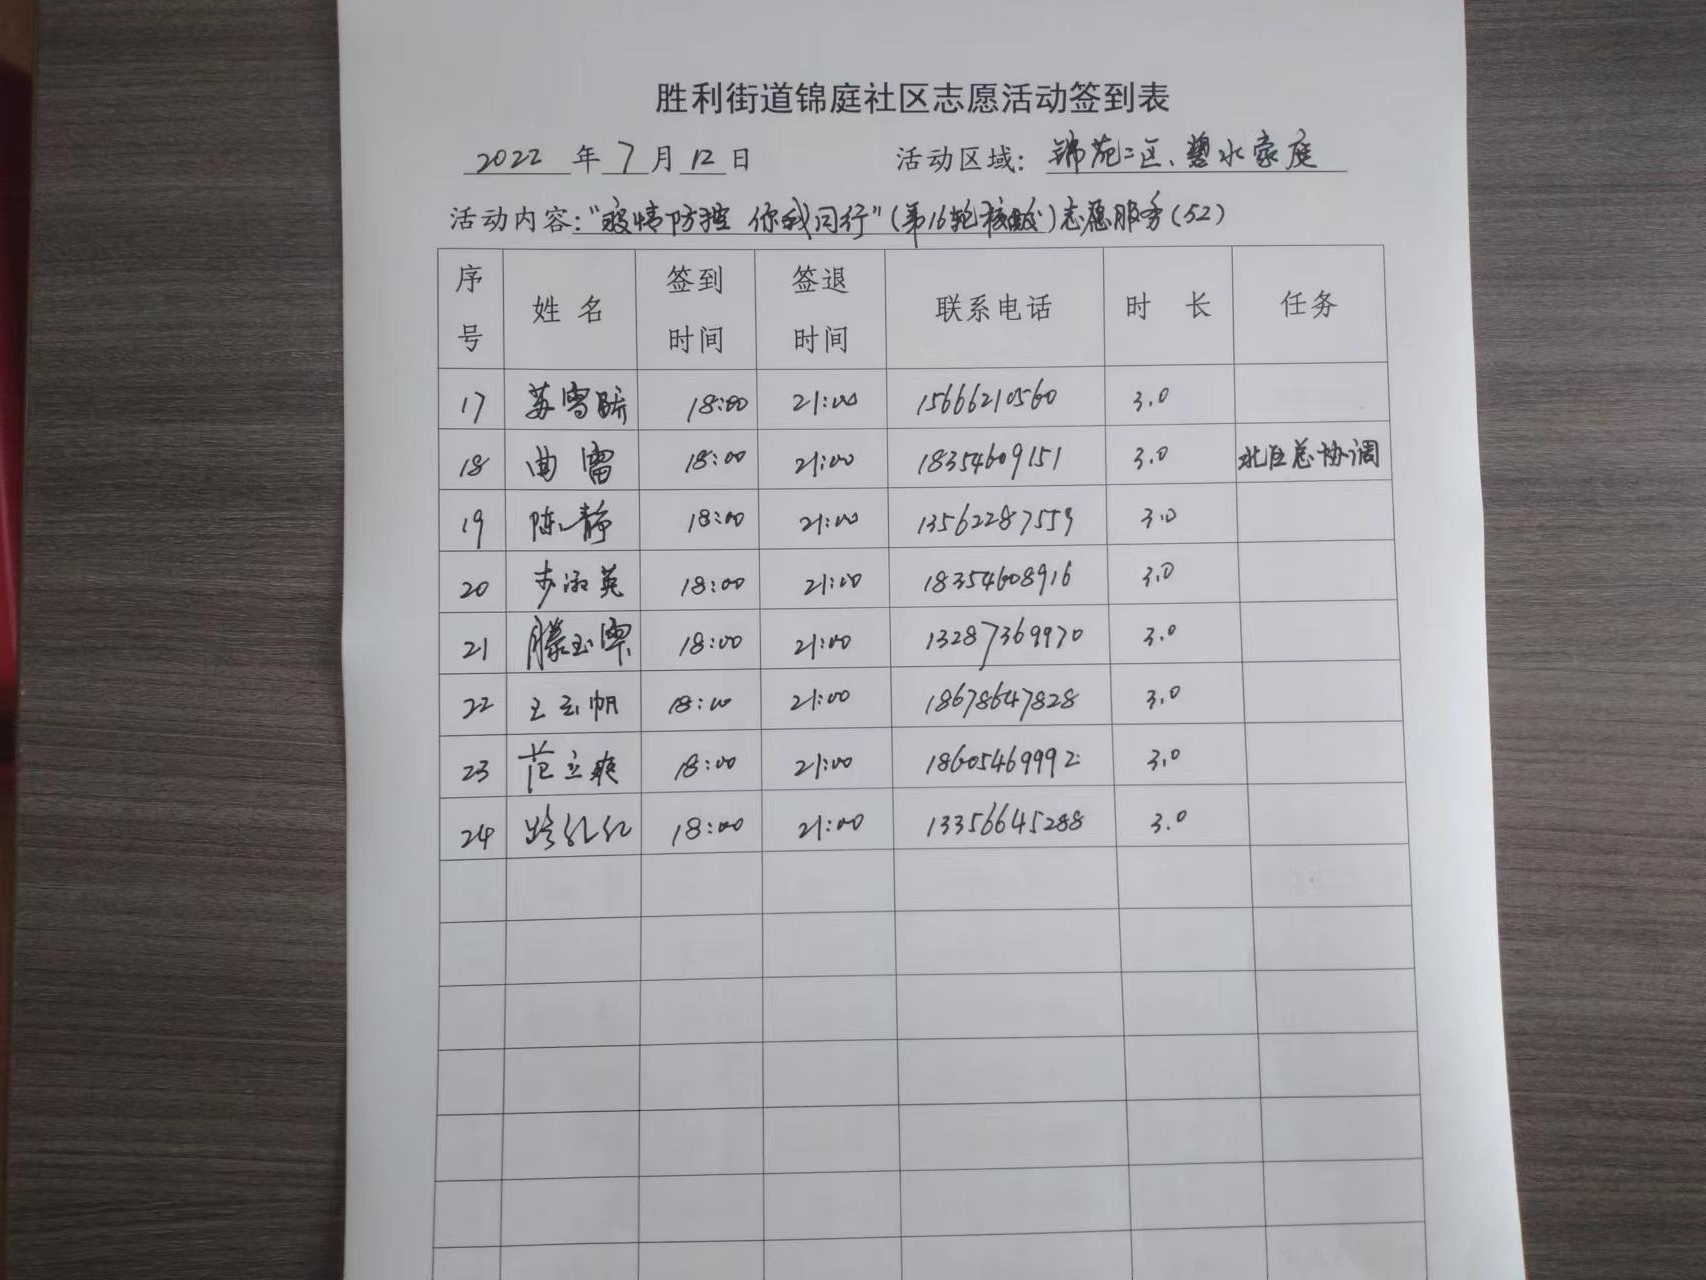 胜利街道锦庭社区志愿活动签到表
2022年7月12日 活动区域：锦苑二区、碧水家庭
活动内容："疫情防控 你我同行"(第16轮核酸)志愿服务(52)
序号 姓名 签到时间 签退时间 联系电话 时长 任务
17 苏雪 18:00 21:00 15666210560 3.0
18 曲雷 18:00 21:00 18354609151 3.0 北区总协调
19 陈静 18:00 21:00 13562287559 3.0
20 步淑英 18:00 21:00 18354608916 3.0
21 滕玉霞 18:00 21:00 13287369970 3.0
22 王云帆 18:00 21:00 18678647828 3.0
23 范立爽 18:00 21:00 18605469992 3.0
24 红红 18:00 21:00 13356645288 3.0